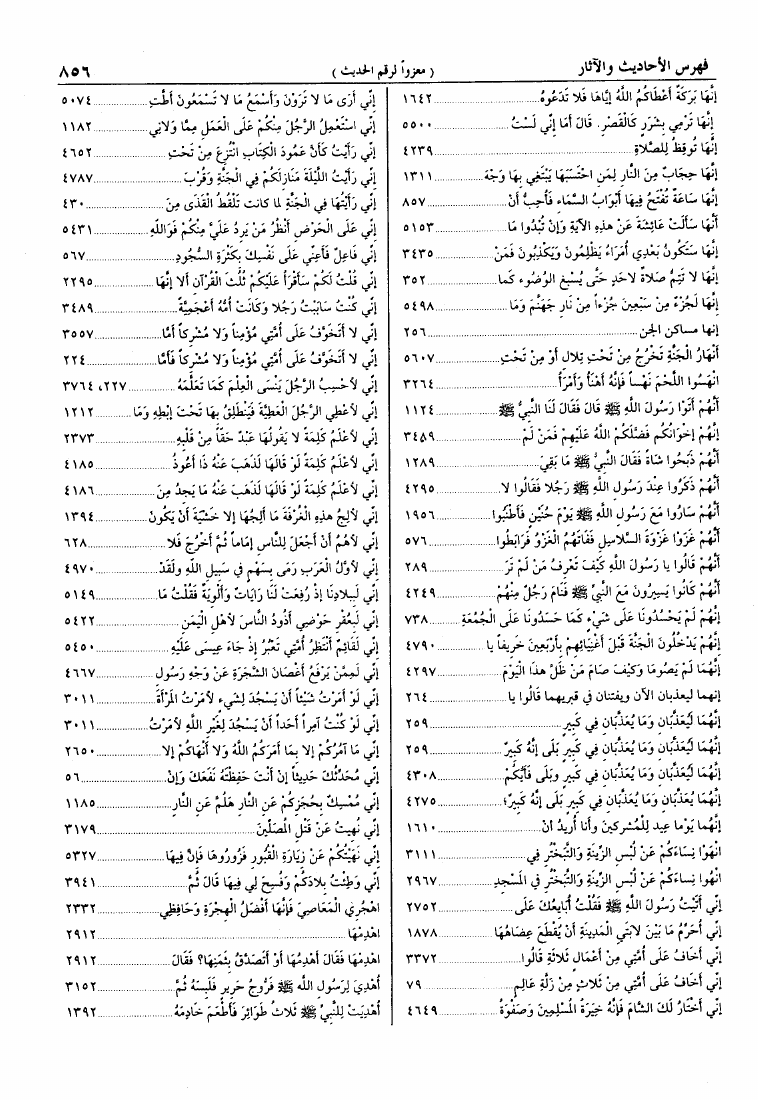 فهرس الأحاديث والآثار
( معزواً لرقم الحديث )
٨٥٦
إنَّهَا بَرَكَةٌ أَعْطَاكُمُ اللَّهُ إيَّاهَا فَلا تَدَعُوهُ ١٦٤٢
إنَّهَا تَرْمِي بِشَرَرٍ كَالْقَصْرِ. قَالَ أمَا إنِّي لَسْتُ ٥٥٠٠
إنَّهَا تُوقِظُ لِلصَّلاةِ ٤٢٣٩
إنَّهَا حِجَابٌ مِنَ النَّارِ لِمَنِ احْتَسَبَهَا يَبْتَغِي بِهَا وَجْهَ ١٣١١
إنَّهَا سَاعَةٌ تُفْتَحُ فِيهَا أَبْوَابُ السَّمَاءِ فَأُحِبُّ أنْ ٨٥٧
أنَّهَا سَأَلَتْ عَائِشَةَ عَنْ هذِهِ الآيَةِ وَإنْ تُبْدُوا مَا ٥١٥٣
إنَّهَا سَتَكُونُ بَعْدِي أُمَرَاءُ يَظْلِمُونَ وَيَكْذِبُونَ فَمَنْ ٣٤٣٥
إنَّهَا لا تَتِمُّ صَلاةٌ لاحَدٍ حَتَّى يُسْبِغَ الْوُضُوءَ كَما ٣٥٢
إنَّهَا لَجُزْءٌ مِنْ سَبْعِينَ جُزْءاً مِنْ نَارِ جَهَنَّمَ وَمَا ٥٤٩٨
إنها مساكن الجن ٢٥٦
أنْهَارُ الْجَنَّةِ تَخْرُجُ مِنْ تَحْتِ تِلالٍ أوْ مِنْ تَحْتِ ٥٦٠٧
انْهَسُوا اللَّحْمَ نَهْساً فَإنَّهُ أَهْنَأُ وَأَمْرَأُ ٣٢٦٤
أنَّهُمْ أَتَوْا رَسُولَ اللَّهِ ﷺ قَالَ فَقَالَ لَنَا النَّبِيُّ ﷺ ١١٢٤
إنَّهُمْ إخْوَانُكُم فَضَّلَكُمُ اللَّهُ عَلَيْهِمْ فَمَنْ لَمْ ٣٤٨٩
أنَّهُمْ ذَبَحُوا شَاةً فَقَالَ النَّبِيُّ ﷺ مَا بَقِيَ ١٢٨٩
أنَّهُمْ ذَكَرُوا عِنْدَ رَسُولِ اللَّهِ ﷺ رَجُلا فَقَالُوا لا ٤٢٩٥
أنَّهُمْ سَارُوا مَعَ رَسُولِ اللَّهِ ﷺ يَوْمَ حُنَيْنٍ فَأَطْنَبُوا ١٩٥٦
أنَّهُمْ غَزَوْا غَزْوَةَ السَّلاسِلِ فَفَاتَهُمُ الْغَزْوُ فَرَابَطُوا ٥٧٦
أنَّهُمْ قَالُوا يا رَسُولَ اللَّهِ كَيْفَ تَعْرِفُ مَنْ لَمْ تَرَ ٢٨٩
أنَّهُمْ كَانُوا يَسِيرُونَ مَعَ النَّبِيِّ ﷺ فَنَامَ رَجُلٌ مِنْهُمْ ٤٢٤٩
إنَّهُمْ لَمْ يَحْسُدُونَا عَلَى شَيْءٍ كَمَا حَسَدُونَا عَلَى الْجُمُعَةِ ٧٣٨
إنَّهُمْ يَدْخُلُونَ الْجَنَّةَ قَبْلَ أَغْنِيَائِهِمْ بِأَرْبَعِينَ خَرِيفاً يا ٤٧٩٠
إنَّهُمَا لَمْ يَصُومَا وَكَيْفَ صَامَ مَنْ ظَلَّ هذَا الْيَوْمَ ٤٢٩٧
إنهما ليعذبان الآن ويفتنان في قبريهما قَالُوا يا ٢٦٤
إنَّهُمَا لَيُعَذَّبَانِ وَمَا يُعَذَّبَانِ فِي كَبِيرٍ ٢٥٩
إنَّهُمَا لَيُعَذَّبَانِ وَمَا يُعَذَّبَانِ فِي كَبِيرٍ بَلَى إنَّهُ كَبِيرٌ ٢٥٩
إنَّهُمَا لَيُعَذَّبَانِ وَمَا يُعَذَّبَانِ فِي كَبِيرٍ وَبَلَى فَأَيُّكُمْ ٤٣٠٨
إنَّهُمَا يُعَذَّبَانِ وَمَا يُعَذَّبَانِ فِي كَبِيرٍ بَلَى إنَّهُ كَبِيرٌ؛ ٤٢٧٥
إنَّهُمَا يَوْمَا عِيدٍ لِلْمُشْرِكِينَ وأنا أُرِيدُ أنْ ١٦١٠
انْهَوْا نِسَاءَكُمْ عَنْ لُبْسِ الزِّينَةِ وَالتَّبَخْتُرِ فِي ٣١١١
انْهُوا نِساءَكُمْ عَنْ لُبْسِ الزِّينَةِ وَالتَّبَخْتُرِ فِي الْمَسْجِدِ ٢٩٦٧
إنِّي أَتَيْتُ رَسُولَ اللَّهِ ﷺ فَقُلْتُ أُبَايِعُكَ عَلَى ٢٧٥٢
إنِّي أُحَرِّمُ مَا بَيْنَ لابَتَيِ الْمَدِينَةِ أنْ يُقْطَعَ عِضَاهُهَا ١٨٧٨
إنِّي أَخَافُ عَلَى أُمَّتِي مِنْ أَعْمَالٍ ثَلاثَةٍ قَالُوا ٣٣٧٢
إنِّي أَخَافُ عَلَى أُمَّتِي مِنْ ثَلاثٍ مِنْ زَلَّةِ عَالِمٍ ٧٩
إنِّي أَخْتَارُ لَكَ الشَّامَ فَإنَّهُ خِيَرَةُ الْمُسْلِمِينَ وَصَفْوَةُ ٤٦٤٩
إنِّي أَرَى مَا لا تَرَوْنَ وَأَسْمَعُ مَا لا تَسْمَعُونَ أَطَّتِ ٥٠٧٤
إنِّي اسْتَعْمِلُ الرَّجُلَ مِنْكُمْ عَلَى الْعَمَلِ مِمَّا وَلانِي ١١٨٢
إنِّي رَأَيْتُ كَأنَّ عَمُودَ الْكِتَابِ انْتُزِعَ مِنْ تَحْتِ ٤٦٥٢
إنِّي رَأَيْتُ اللَّيْلَةَ مَنَازِلَكُمْ فِي الْجَنَّةِ وَقُرْبَ ٤٧٨٧
إنِّي رَأَيْتُهَا فِي الْجَنَّةِ لِما كانت تَلْقُطُ الْقَذَى مِنَ ٤٣٠
إنِّي عَلَى الْحَوْضِ أَنْظُرُ مَنْ يَرِدُ عَلَيَّ مِنْكُمْ فَوَاللَّهِ ٥٤٣١
إنِّي فَاعِلٌ فَأَعِنِّي عَلَى نَفْسِكَ بِكَثْرَةِ السُّجُودِ ٥٦٧
إنِّي قُلْتُ لَكُمْ سَأَقْرَأُ عَلَيْكُمْ ثُلُثَ الْقُرْآنِ ألا إنَّهَا ٢٢٩٥
إنِّي كُنْتُ سَابَبْتُ رَجُلا وَكَانَتْ أُمُّهُ أَعْجَمِيَّةً ٣٤٨٩
إنِّي لا أَتَخَوَّفُ عَلَى أُمَّتِي مُؤْمِناً وَلا مُشْرِكاً أمَّا ٣٥٥٧
إنِّي لا أَتَخَوَّفُ عَلَى أُمَّتِي مُؤْمِناً وَلا مُشْرِكاً فَأمَّا ٢٢٤
إنِّي لأحْسِبُ الرَّجُلَ يَنْسَى الْعِلْمَ كَمَا تَعَلَّمَهُ ٢٢٧، ٣٧٦٤
إنِّي لأُعْطِي الرَّجُلَ الْعَطِيَّةَ فَيَنْطَلِقُ بِهَا تَحْتَ إبْطِهِ وَمَا ١٢١٢
إنِّي لأعْلَمُ كَلِمَةً لا يَقُولُهَا عَبْدٌ حَقّاً مِنْ قَلْبِهِ ٢٣٧٣
إنِّي لأعْلَمُ كَلِمَةً لَوْ قَالَهَا لَذَهَبَ عَنْهُ ذَا أَعُوذُ ٤١٨٥
إنِّي لأعْلَمُ كَلِمَةً لَوْ قَالَهَا لَذَهَبَ عَنْهُ مَا يَجِدُ مِنَ ٤١٨٦
إنِّي لأَلِجُ هذِهِ الْغُرْفَةَ مَا أَلِجُهَا إلا خَشْيَةَ أنْ يَكُونَ ١٣٩٤
إنِّي لأهُمُّ أنْ أَجْعَلَ لِلنَّاسِ إمَاماً ثُمَّ أَخْرُجَ فَلا ٦٢٨
إنِّي لأوَّلُ الْعَرَبِ رَمَى بِسَهْمٍ فِي سَبِيلِ اللَّهِ وَلَقَدْ ٤٩٧٠
إنِّي لَبِبِلادِنَا إذْ رُفِعَتْ لَنَا رَايَاتٌ وَأَلْوِيَةٌ فَقُلْتُ مَا ٥١٤٩
إنِّي لَبِعُقْرِ حَوْضِي أَذُودُ النَّاسَ لأهْلِ الْيَمَنِ ٥٤٢٢
إنِّي لَقَائِمٌ أَنْتَظِرُ أُمَّتِي تَعْبُرُ إذْ جَاءَ عِيسَى عَلَيْهِ ٥٤٥٠
إنِّي لَمِمَّنْ يَرْفَعُ أَغْصَانَ الشَّجَرَةِ عَنْ وَجْهِ رَسُولِ ٤٦٦٧
إنِّي لَوْ أَمَرْتُ شَيْئاً أنْ يَسْجُدَ لِشَيْءٍ لأمَرْتُ الْمَرْأَةَ ٣٠١١
إنِّي لَوْ كُنْتُ آمِراً أَحَداً أنْ يَسْجُدَ لِغَيْرِ اللَّهِ لأمَرْتُ ٣٠١١
إنِّي مَا آمُرُكُمْ إلا بِمَا أَمَرَكُمُ اللَّهُ وَلا أَنْهَاكُمْ إلا ٢٦٥٠
إنِّي مُحَدِّثُكَ حَدِيثاً إنْ أنْتَ حَفِظْتَهُ نَفَعَكَ وَإنْ ٥٦
إنِّي مُمْسِكٌ بِحُجَزِكُمْ عَنِ النَّارِ هَلُمَّ عَنِ النَّارِ ١١٨٥
إنِّي نُهِيتُ عَنْ قَتْلِ الْمُصَلِّينَ ٣١٧٩
إنِّي نَهَيْتُكُمْ عَنْ زِيَارَةِ الْقُبُورِ فَزُورُوهَا فَإنَّ فِيهَا ٥٣٢٧
إنِّي وَطِئْتُ بِلادَكُمْ وَفُسِحَ لِي فِيهَا قَالَ ثُمَّ ٣٩٤١
اهْجُرِي الْمَعَاصِيَ فَإنَّهَا أَفْضَلُ الْهِجْرَةِ وَحَافِظِي ٢٣٣٢
اهْدِمْهَا ٢٩١٢
اهْدِمْهَا فَقَالَ أَهْدِمُهَا أوْ أَتَصَدَّقُ بِثَمَنِهَا؟ فَقَالَ ٢٩١٢
أُهْدِيَ لِرَسُولِ اللَّهِ ﷺ فَرُّوجُ حَرِيرٍ فَلَبِسَهُ ثُمَّ ٣١٥٢
أُهْدِيَتْ لِلنَّبِيِّ ﷺ ثَلاثُ طَوَائِرَ فَأَطْعَمَ خَادِمَهُ ١٣٩٢